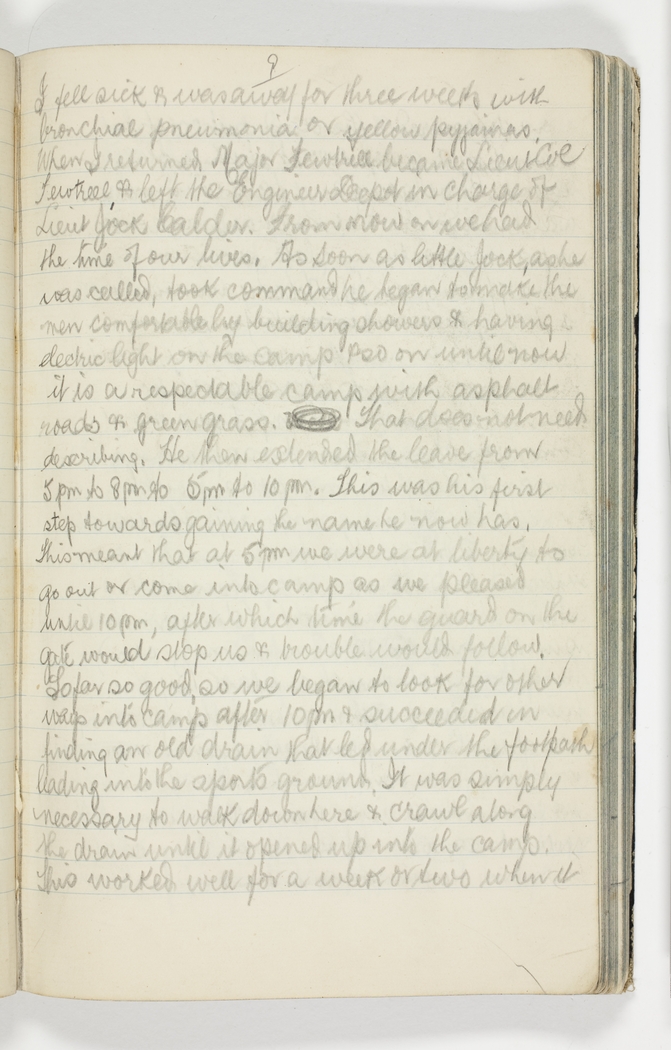 9
I fell sick & was away for three weeks with
bronchial pneumonia or yellow pyjamas.
When I returned Major Fewtrell became Lieut Col
Fewtrell & left the Engineer Depot in charge of
Lieut Jock Calder. From now on we had
the time of our lives. As soon as little Jock, as he
was called, took command he began to make the
men comfortable by building showers & having
electric light on the camp & so on until now
it is a respectable camp with asphalt
roads & green grass. That does not need
describing. He then extended the leave from
5 pm to 8 pm to 5 pm to 10 pm. This was his first
step towards gaining the name he now has.
This meant that at 5 pm we were at liberty to
go out or come into camp as we pleased
until 10 pm, after which time the guard on the
gate would stop us & trouble would follow.
So far so good, so we began to look for other
ways into camp after 10 pm & succeeded in
finding an old drain that led under the footpath
leading into the sports ground. It was simply
necessary to walk down here & crawl along
the drain until it opened up into the camp.
This worked well for a week or two when it